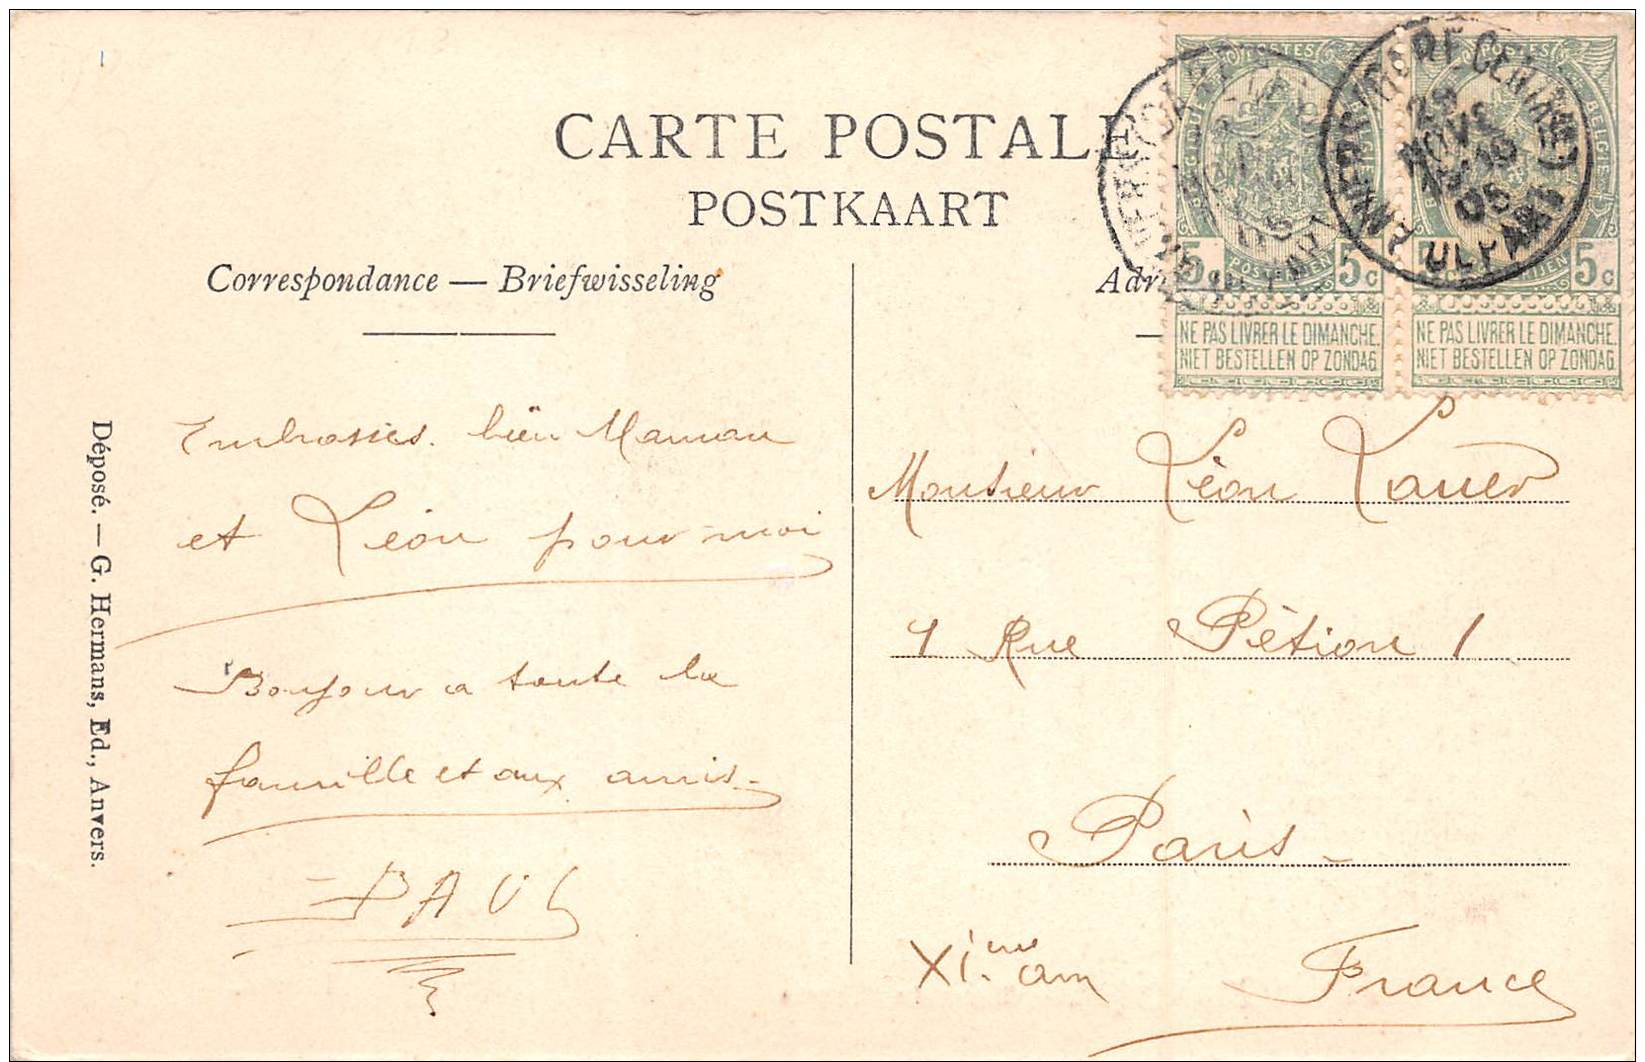 CARTE POSTALE
POSTKAART
Correspondance — Briefwisseling
Adr
POSTES
BELGIQUE
BELGIE
5 POSTERIJEN 5c
NE PAS LIVRER LE DIMANCHE.
NIET BESTELLEN OP ZONDAG.
POSTES
BELGIE
5c 5c
NE PAS LIVRER LE DIMANCHE.
NIET BESTELLEN OP ZONDAG.
ANVERS (GARE CENTRALE)
NOVE
05
Embrasses. bien Maman
et Léon pour moi
Bonjour a toute la
famille et aux amis.
PAUL
Monsieur Léon Lauer
1 Rue Pétion 1
Paris.
XIème arr
France
Déposé. — G. Hermans, Ed., Anvers.